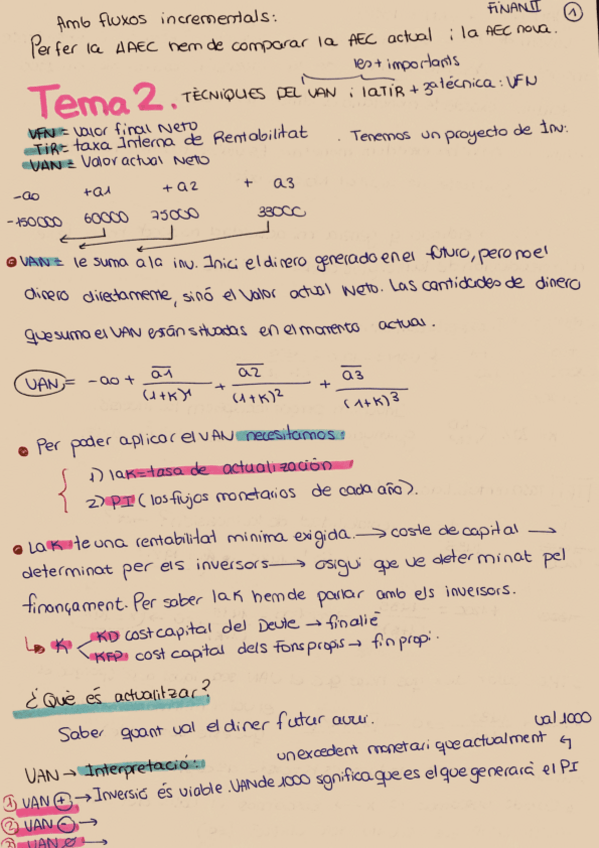 Amb fluxos incrementals:
FINAN II
1
Per fer la ΔAEC hem de comparar la AEC actual i la AEC nova.
les + importants
Tema 2. TÈCNIQUES DEL VAN i la TIR + 3ª tècnica: VFN
VFN = Valor final Neto
TIR = taxa Interna de Rentabilitat . Tenemos un proyecto de Inv:
VAN = Valor actual Neto
-a0 +a1 +a2 + a3
-150000 60000 75000 33000
VAN = le suma a la inv. Inici el dinero generado en el futuro, pero no el
dinero directamente, sinó el Valor actual Neto. Las cantidades de dinero
que suma el VAN están situadas en el momento actual.
VAN = -a0 + a1/(1+K)^1 + a2/(1+K)^2 + a3/(1+K)^3
Per poder aplicar el VAN necesitamos:
1) la K = tasa de actualización
2) PI (los flujos monetarios de cada año).
La K te una rentabilitat mínima exigida. → coste de capital →
determinat per els inversors → osigui que ve determinat pel
finançament. Per saber la K hem de parlar amb els inversors.
K KD cost capital del Deute → fin aliè
KFP cost capital dels Fons propis → fin propi.
¿Què és actualitzar?
Saber quant val el diner futur avui.
val 1000
VAN → Interpretació: un excedent monetari que actualment
1 VAN + → Inversió és viable. VAN de 1000 significa que es el que generarà el PI
2 VAN - →
3 VAN ø →